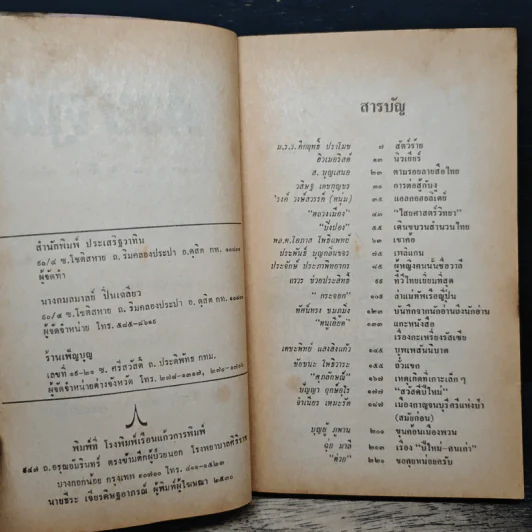 สำนักพิมพ์ ประเสริฐวาทิน
๕๐/๕ ซ.โชติสหาย ถ. ริมคลองประปา อ.ดุสิต กท. ๑๐๘๐๐
ผู้จัดทำ
นางกมลมาลย์ ปิ่นเฉลียว
๕๐/๕ ซ.โชติสหาย ถ. ริมคลองประปา อ. ดุสิต กท.
ผู้จัดจำหน่าย โทร.
ร้านเพ็ญบุญ
เลขที่ ๑๙-๒๑ ซ. ศรีสวัสดิ์ ถ. ประดิพัทธ กทม.
ผู้จัดจำหน่ายต่างจังหวัด โทร.
พิมพ์ที่ โรงพิมพ์เรือนแก้วการพิมพ์
๙๔๗ ถ.อรุณอมรินทร์ ตรงข้ามตึกผู้ป่วยนอก โรงพยาบาลศิริราช
บางกอกน้อย กรุงเทพ ๑๐๗๐๐ โทร. ๔๑๑-๑๕๒๓
นายชีระ ผู้พิมพ์ผู้โฆษณา ๒๕๓๐
สารบัญ
ม.ร.ว.คึกฤทธิ์ ปราโมช ๗ สัตว์ร้าย
ฮิวเมอริสต์ ๑๓ นิวเยียร์
ส. บุญเสนอ ๒๓ ตามรอยลายสือไทย
วสิษฐ เดชกุญชร ๓๑ การต่อสู้กับงู
'รงค์ วงษ์สวรรค์ (หนุ่ม) ๓๕
"หลวงเมือง" ๔๓ "ไสยศาสตร์วิทยา"
"บึงปอง" ๕๕ เดินขบวนสำนวนไทย
พล.ต.โอภาส โพธิแพทย์ ๖๓ เขาค้อ
ประพันธ์ บุญกลิ่นขจร ๗๕ เทลแกน
ประจักษ์ ประภาพิทยากร ๘๕ ผู้หญิงคนนั้นชื่อวาลี
ถาวร ช่วยประสิทธิ์ ๙๕ ที่วิไทยเขียมที่สุด
"กระจอก" ๑๐๕ ลำแม่ทัพเรือญี่ปุ่น
ทัศน์ทรง ชมภูมิ่ง ๑๒๓ บันทึกจากนักอ่านถึงนักอ่าน
"หนูเอียด" ๑๓๓ แกะหนังสือ
เรื่องกะเหรี่ยงรัสเซีย
เดชะพิทย์ แสงสิงแก้ว ๑๔๕ บุพเพสันนิบาต
ชัยชนะ โพธิวาระ ๑๕๕ ถั่วแขก
"ศุภลักษณ์" ๑๖๗ เหตุเกิดที่เกาะเล็ก ๆ
ปัญญา ฤกษ์อุไร ๑๗๗ "สวัสดีปีใหม่"
จำเนียร เหมะรัต ๑๘๗ เมืองกาญจนบุรีศรีแห่งป่า
(สมัยก่อน)
บุญชู ภูพาน ๒๐๑ ขุนค้อนเมืองพวน
ฉุย มาลี ๒๑๓ เรื่อง "ปีใหม่-คนเก่า"
"ต่วย" ๒๒๑ ขอคุยหน่อยครับ